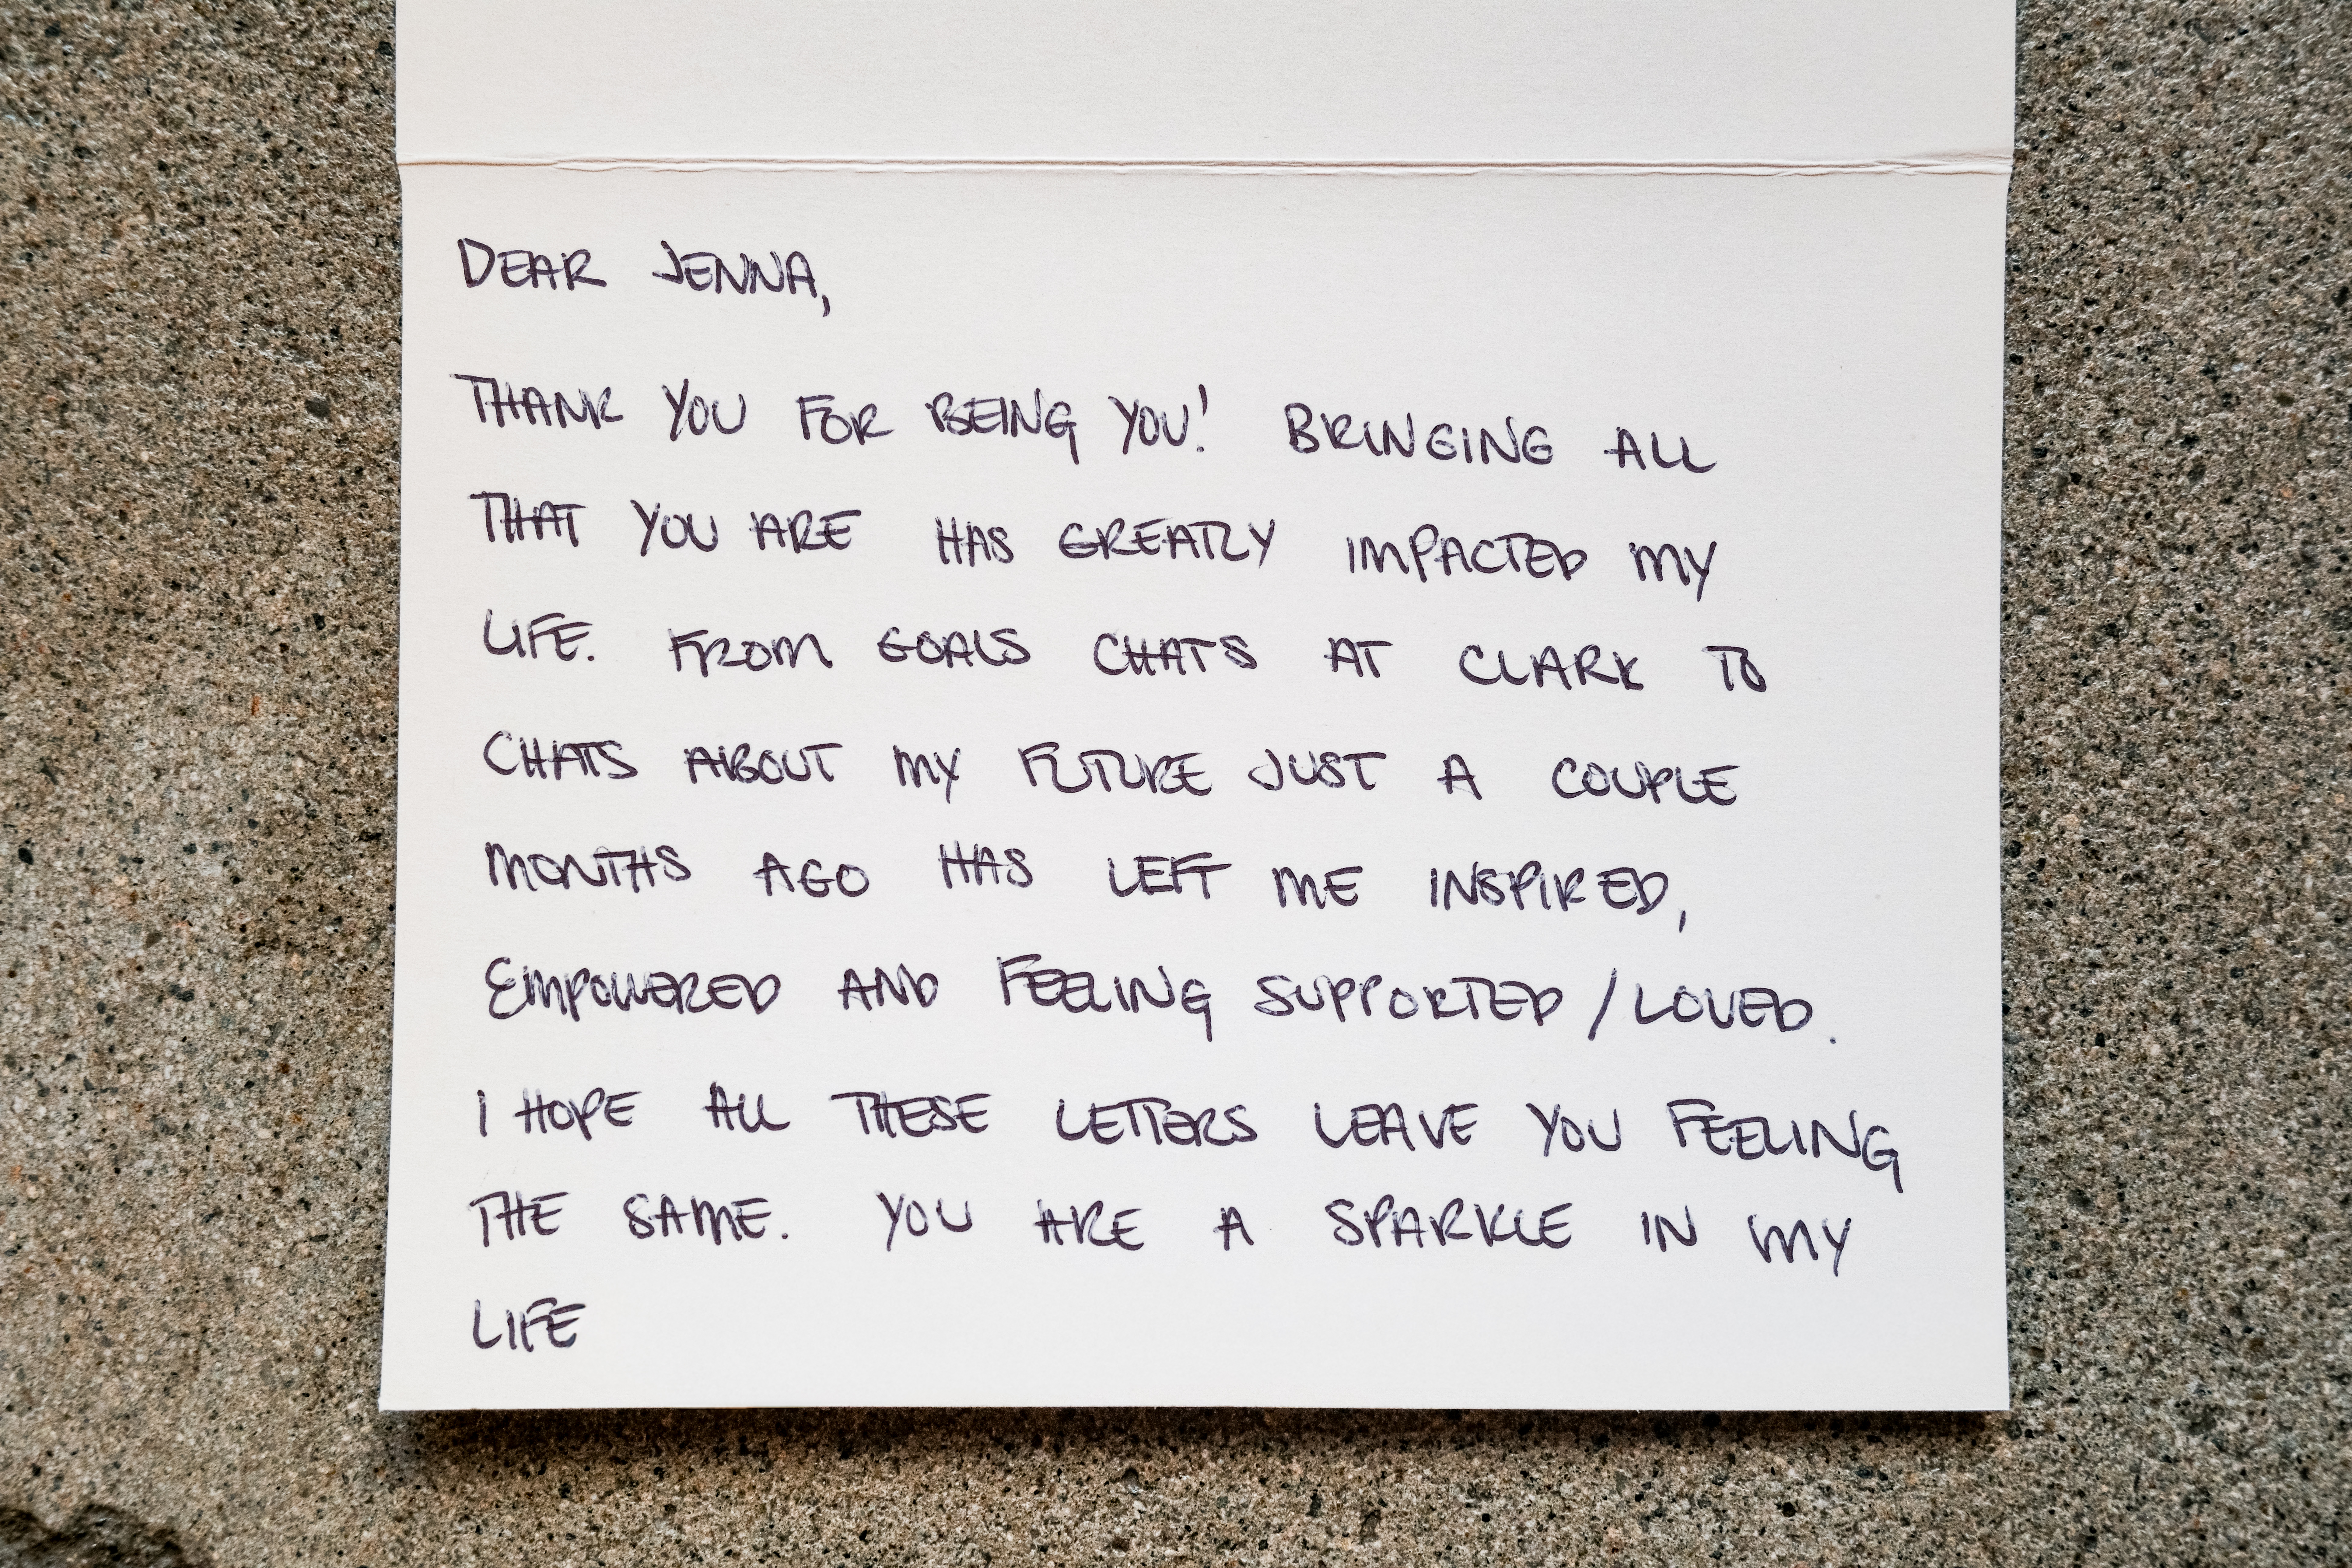 DEAR JENNA,
THANK YOU FOR BEING YOU! BRINGING ALL
THAT YOU ARE HAS GREATLY IMPACTED MY
LIFE. FROM GOALS CHATS AT CLARK TO
CHATS ABOUT MY FUTURE JUST A COUPLE
MONTHS AGO HAS LEFT ME INSPIRED,
EMPOWERED AND FEELING SUPPORTED / LOVED.
I HOPE ALL THESE LETTERS LEAVE YOU FEELING
THE SAME. YOU ARE A SPARKLE IN MY
LIFE